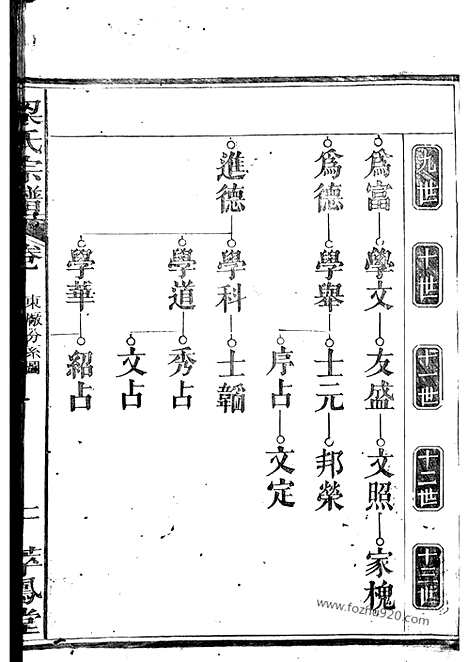 九世
十世
十一世
十二世
十三世
為富
學文
友盛
文照
家槐
為德
學舉
士元
邦榮
序占
文定
進德
學科
士韜
學道
秀占
文占
學華
紹占
梁氏宗譜
卷一
東徹分系圖
www.fozhu920.com